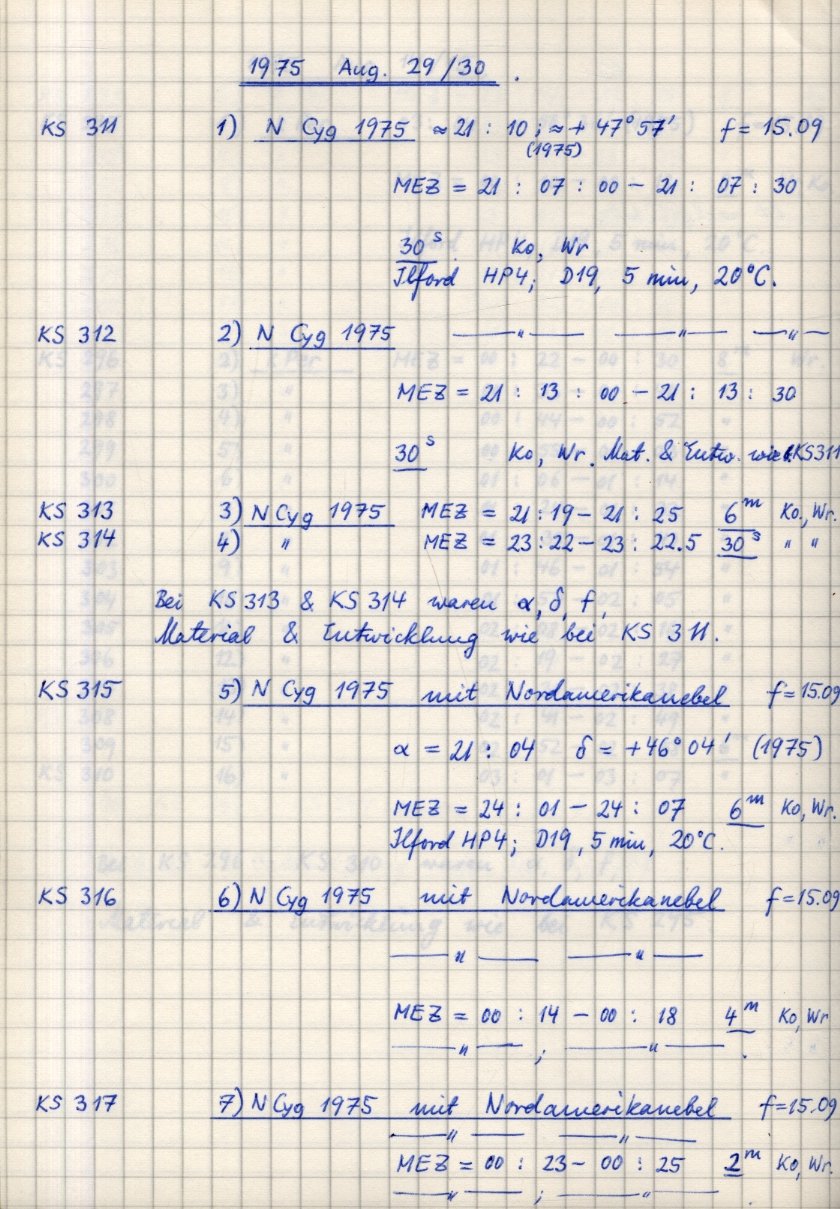 1975 Aug. 29/30 .
KS 311 1) N Cyg 1975 ≈ 21 : 10 ; ≈ + 47° 57' f = 15.09
(1975)
MEZ = 21 : 07 : 00 – 21 : 07 : 30
30 s Ko, Wr
Ilford HP4; D19, 5 min, 20°C.
KS 312 2) N Cyg 1975 —— " —— —— " —— — " —
MEZ = 21 : 13 : 00 – 21 : 13 : 30
30 s Ko, Wr. Mat. & Entw. wie KS311
KS 313 3) N Cyg 1975 MEZ = 21 : 19 – 21 : 25 6 m Ko., Wr.
KS 314 4) " MEZ = 23 : 22 – 23 : 22.5 30 s " "
Bei KS 313 & KS 314 waren α, δ, f,
Material & Entwicklung wie bei KS 311.
KS 315 5) N Cyg 1975 mit Nordamerikanebel f = 15.09
α = 21 : 04 δ = +46° 04' (1975)
MEZ = 24 : 01 – 24 : 07 6 m Ko, Wr.
Ilford HP4; D19, 5 min, 20°C.
KS 316 6) N Cyg 1975 mit Nordamerikanebel f = 15.09
—— " —— —— " ——
MEZ = 00 : 14 – 00 : 18 4 m Ko, Wr
—— " —— ; —— " —— .
KS 317 7) N Cyg 1975 mit Nordamerikanebel f = 15.09
—— " —— —— " ——
MEZ = 00 : 23 – 00 : 25 2 m Ko, Wr.
—— " —— ; —— " —— .